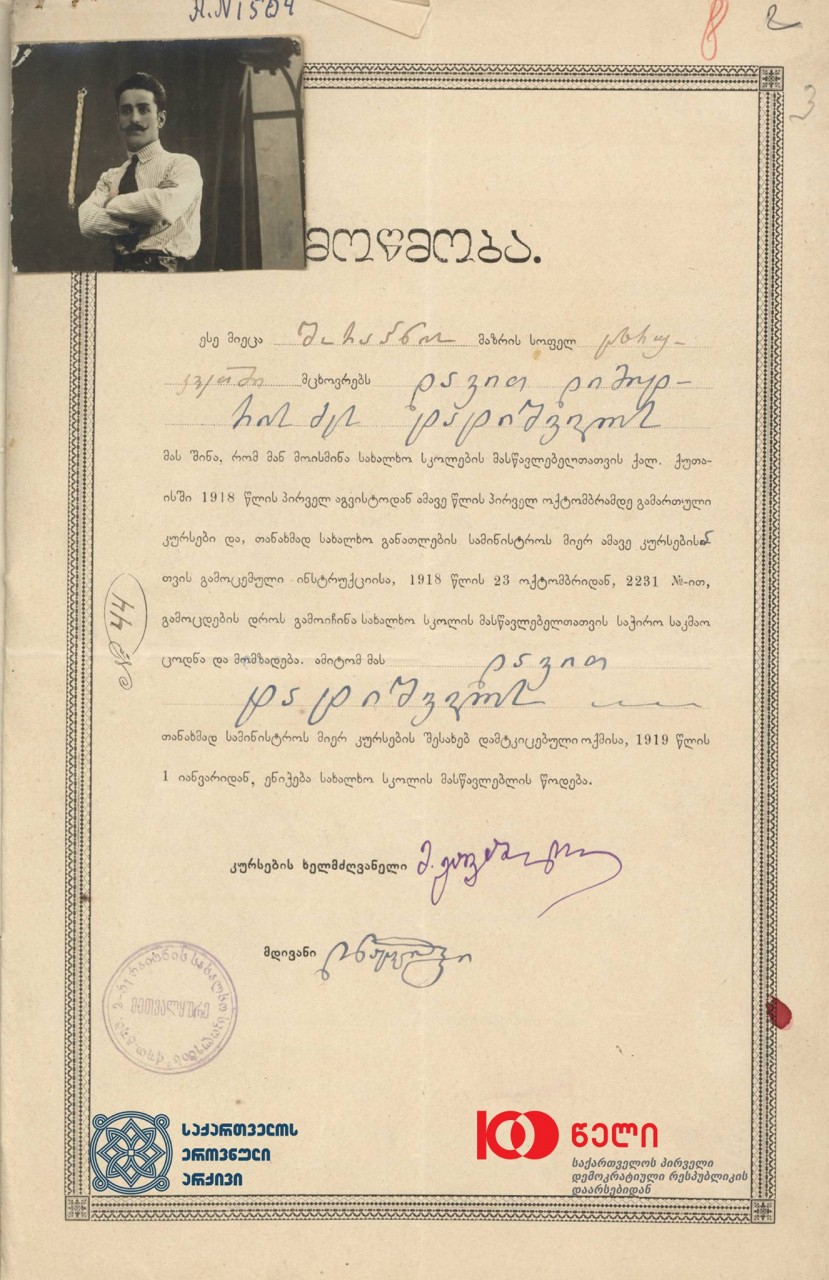 A. N 1504
8
2
3
მოწმობა.
ესე მიეცა შორაპნის მაზრის სოფელ
მცხოვრებს დავით დიმიტ-
რის ძეს დადიშველს
მას შინა, რომ მან მოისმინა სახალხო სკოლების მასწავლებელთათვის ქალ. ქუთა-
ისში 1918 წლის პირველ აგვისტოდან ამავე წლის პირველ ოქტომბრამდე გამართული
კურსები და, თანახმად სახალხო განათლების სამინისტროს მიერ ამავე კურსებისა
თვის გამოცემული ინსტრუქციისა, 1918 წლის 23 ოქტომბრიდან, 2231 №-ით,
გამოცდების დროს გამოიჩინა სახალხო სკოლის მასწავლებელთათვის საჭირო საკმაო
ცოდნა და მომზადება. ამიტომ მას დავით
დადიშველს
თანახმად სამინისტროს მიერ კურსების შესახებ დამტკიცებული ოქმისა, 1919 წლის
1 იანვარიდან, ენიჭება სახალხო სკოლის მასწავლებლის წოდება.
№ 44
კურსების ხელმძღვანელი
მდივანი
მეთვალყურე
საქართველოს
ეროვნული
არქივი
100 წელი
საქართველოს პირველი
დემოკრატიული რესპუბლიკის
დაარსებიდან